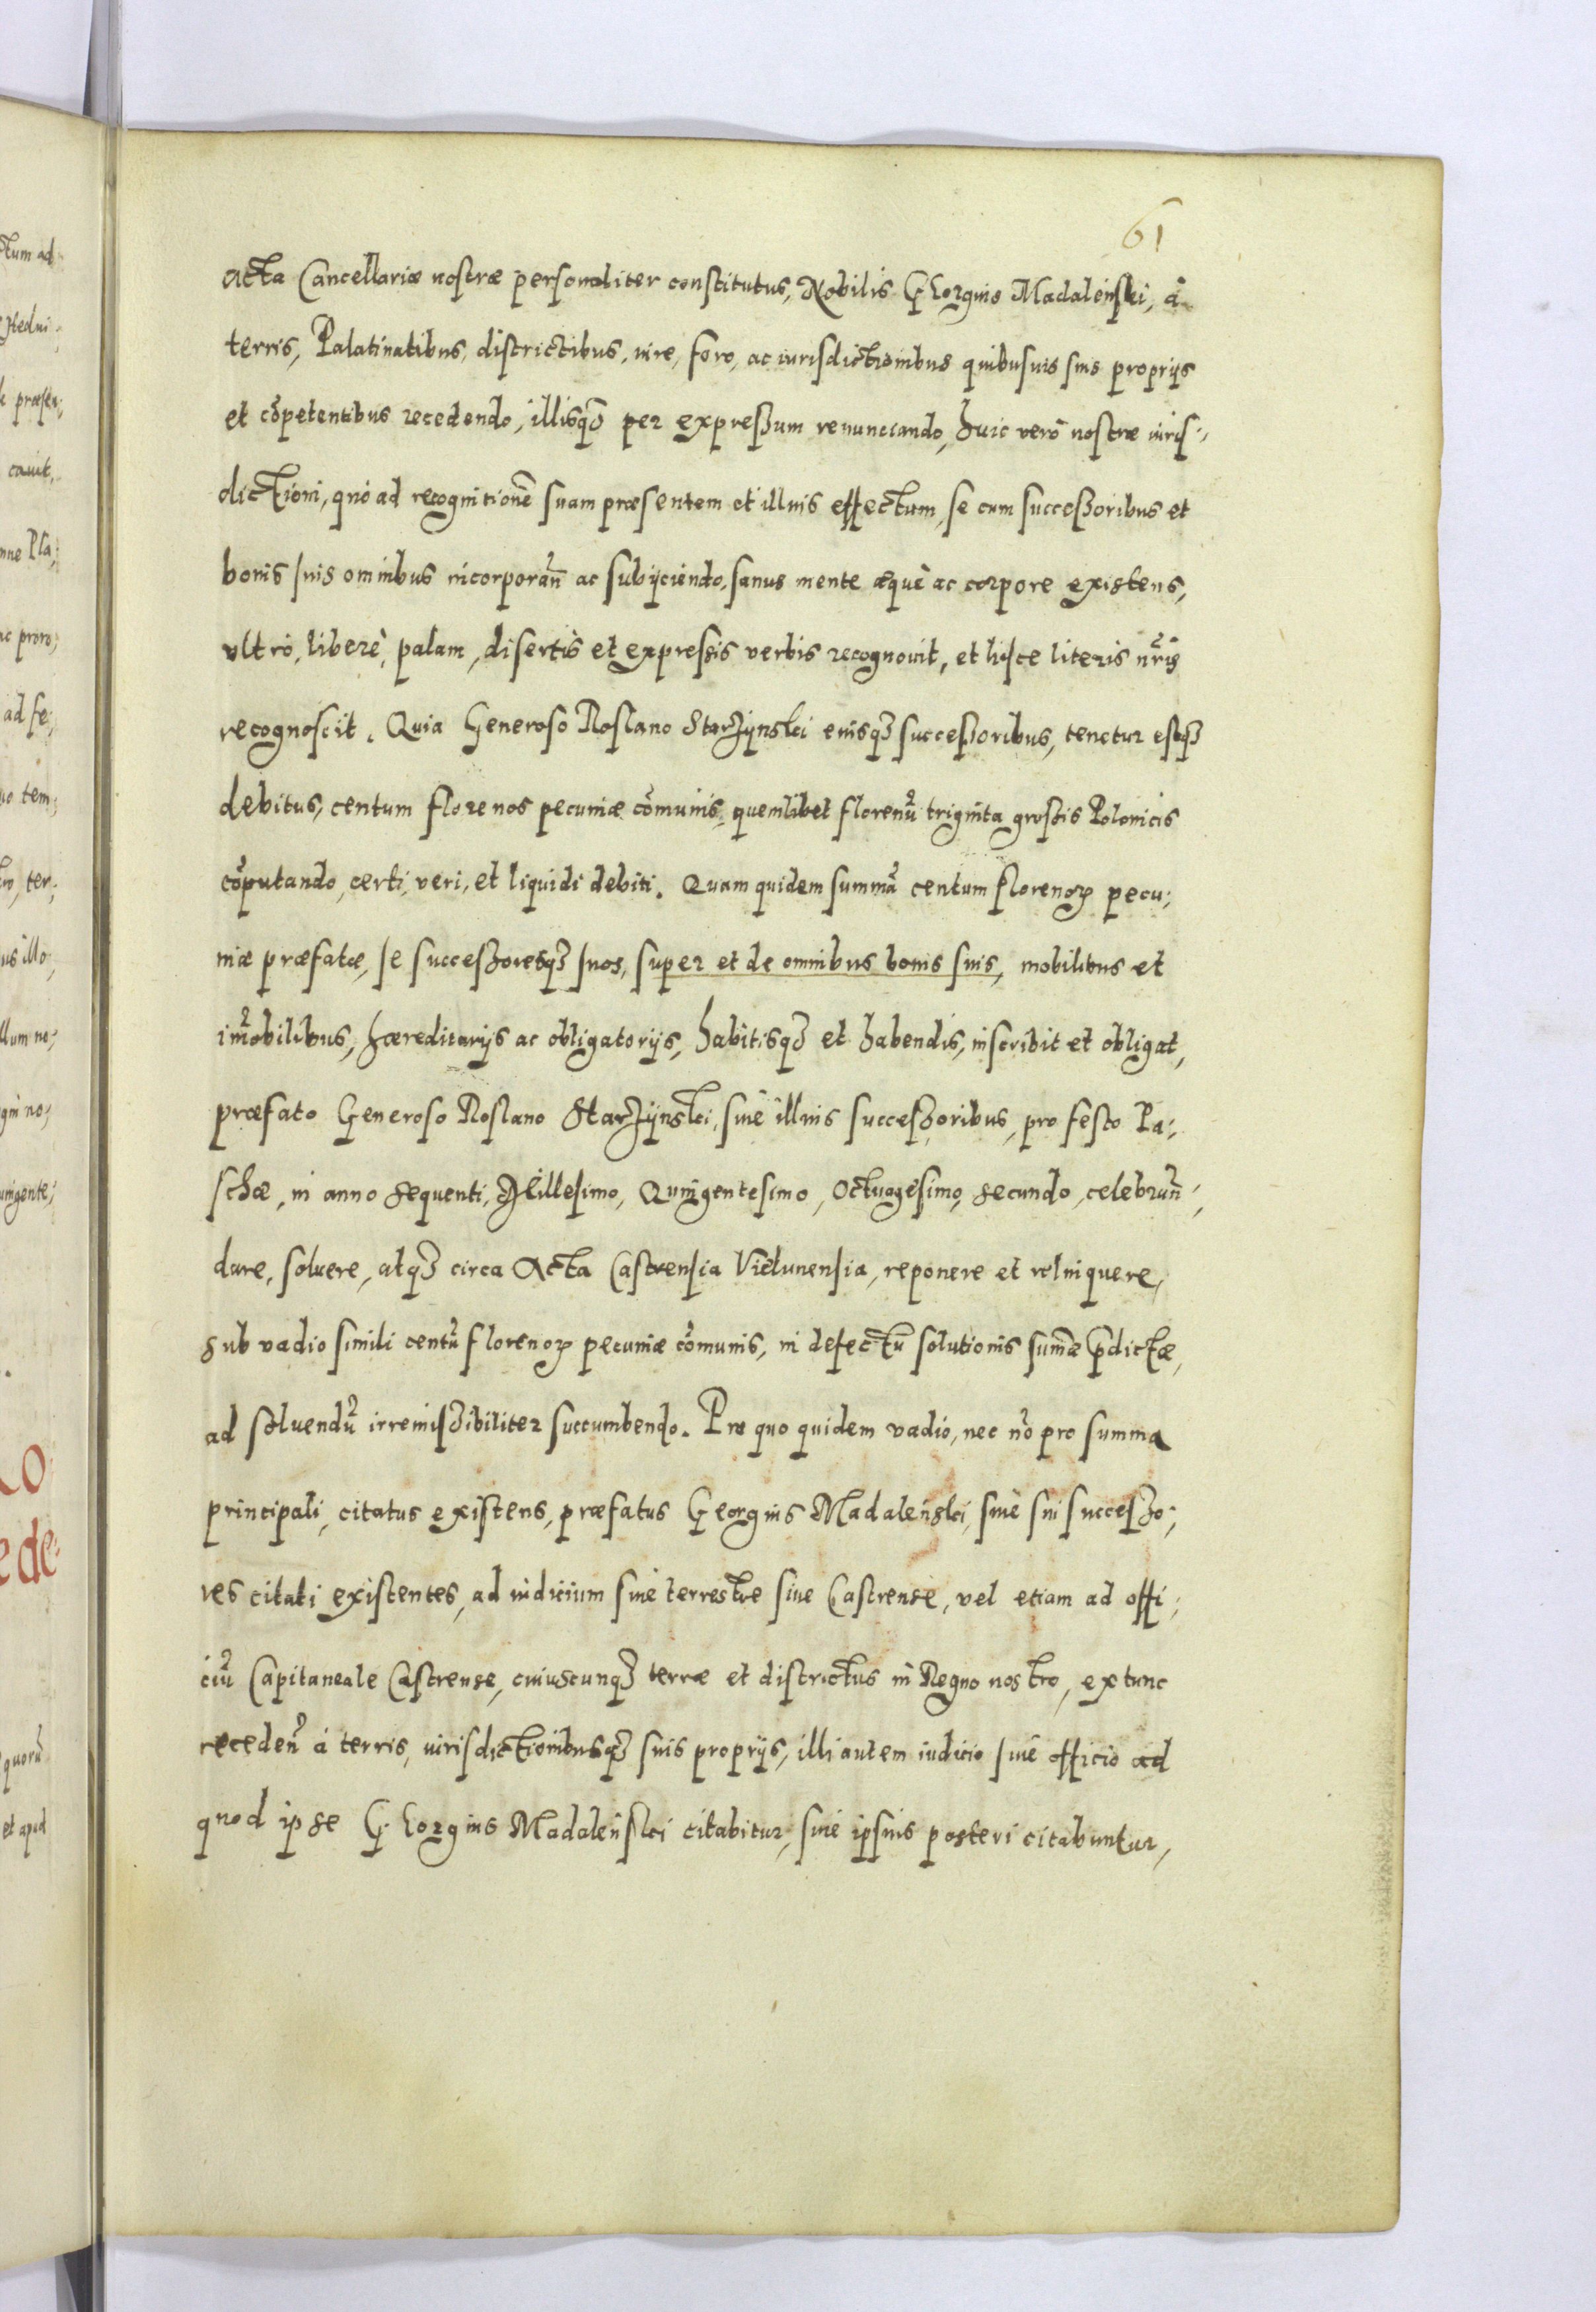 61
Acta Cancellariæ nostræ personaliter constitutus, Nobilis Georgius Madalenski, à
terris, Palatinatibus, districtibus, iure, foro, ac iurisdictionibus quibusuis suis proprijs
et cõpetentibus recedendo, illisqȝ per expressum renunciando, huic verò nostræ iuris-
dictioni, quò ad recognitionẽ suam præsentem et illius effectum, se cum successoribus et
bonis suis omnibus incorporañ ac subijciendo, sanus mente æquè ac corpore existens,
vltrò, liberè, palam, disertis et expressis verbis recognouit, et hisce literis nr̃is
recognoscit. Quia Generoso Roslano Starzÿnski eiusqȝ successoribus, tenetur estqȝ
debitus, centum florenos pecuniæ cõmunis, quemlibet florenũ triginta grossis Polonicis
cõputando, certi, veri, et liquidi debiti. Quam quidem summã centum florenoꝝ pecu-
niæ præfatæ, se successoresqȝ suos, super et de omnibus bonis suis, mobilibus et
im̃obilibus, hæreditarijs ac obligatorijs, habitisqȝ et habendis, inscribit et obligat,
præfato Generoso Roslano Starzÿnski, siuè illius successoribus, pro festo Pa-
schæ, in anno sequenti, Millesimo, Quingentesimo, Octuagesimo, secundo, celebrañ,
dare, soluere, atqȝ circa Acta Castrensia Vielunensia, reponere et relinquere,
sub vadio simili centũ florenoꝝ pecuniæ cõmunis, in defectũ solutionis sum̃æ p̃dictæ,
ad soluendũ irremissibiliter succumbendo. Pro quo quidem vadio, nec nõ pro summa
principali, citatus existens, præfatus Georgius Madalenski, siuè sui successo-
res citati existentes, ad iudicium siuè terrestre siue Castrense, vel etiam ad offi-
ciũ Capitaneale Castrense, cuiuscunqȝ terræ et districtus in Regno nostro, extunc
recedeñ à terris, iurisdictionibusqȝ suis proprijs, illi autem iudicio siuè officio ad
quod ipse Georgius Madalenski citabitur, siuè ipsius posteri citabuntur,